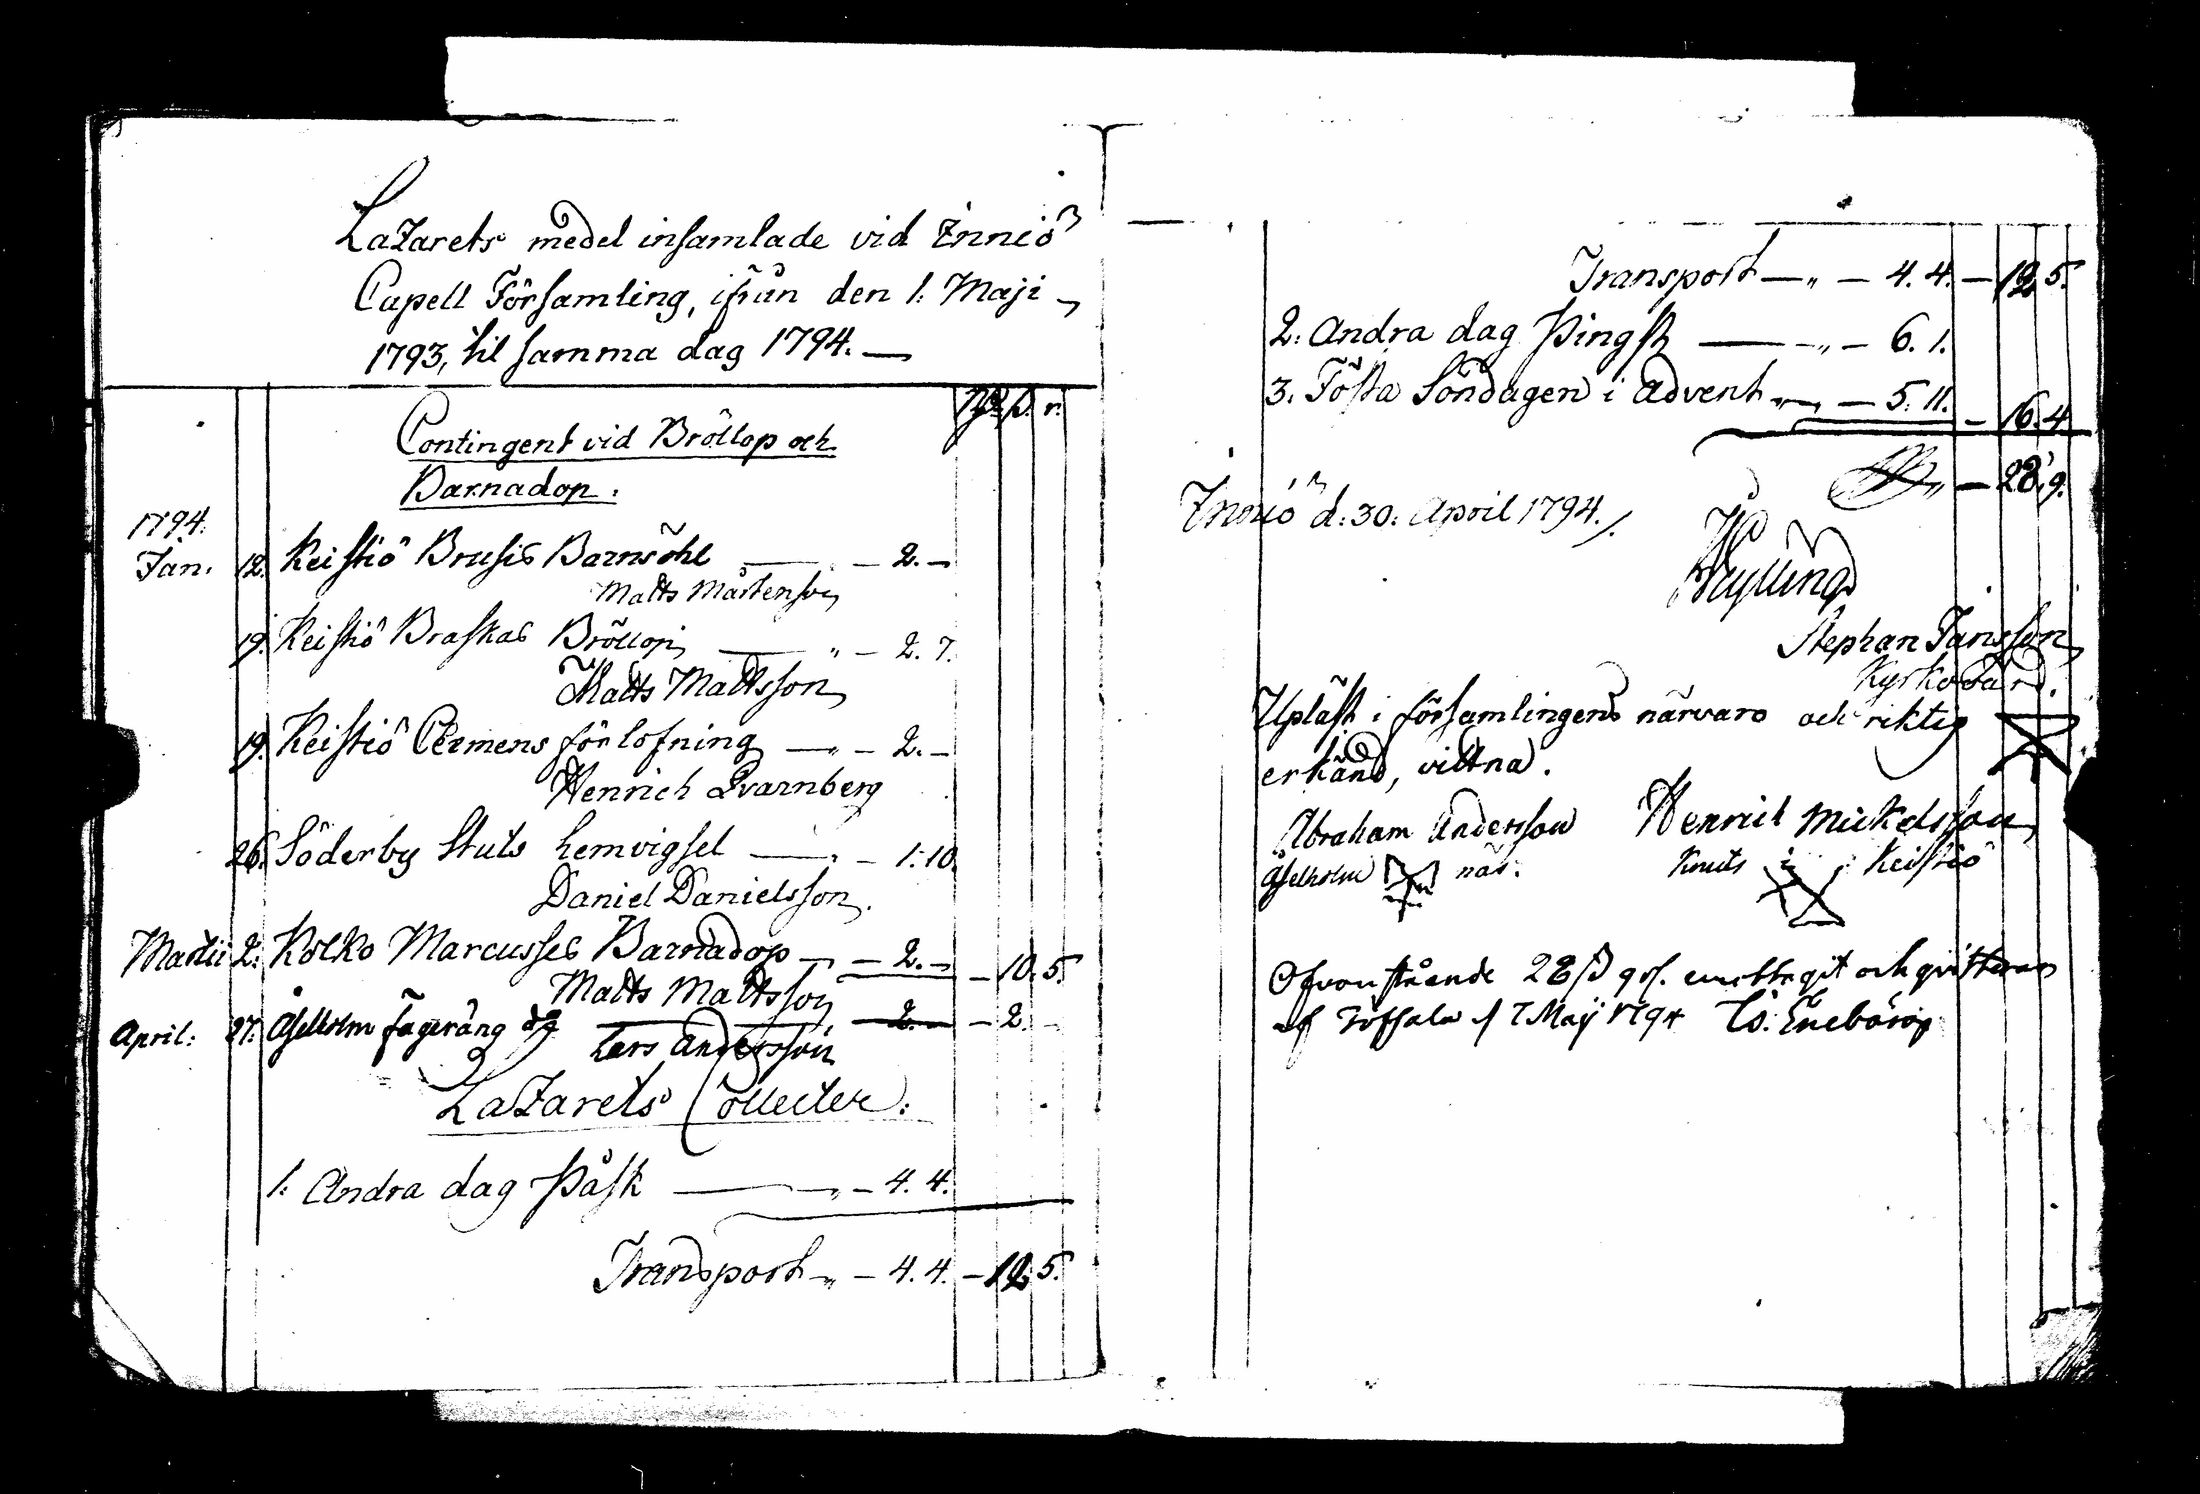 Lazarets medel insamlade vid Innió
Capell Församling, ifrån den 1. Maji
1793, til samma dag 1794. —
Rd. ß. r.
Contingent vid Bröllop och
Barnadop.
1794.
Jan. 12. Keistiö Brusis Barnsöhl — 2. —
Matts Mårtenson
19. Keistiö Braskas Bröllop — " — 2. 7.
Matts Mattsson
19. Keistiö Clemens förlofning — " — 2. —
Henrich Qvarnberg
26. Söderby Stuts hemvigsel — " — 1. 10.
Daniel Danielsson.
Martii 2. Kolko Marcusses Barnadop — — 2. — — 10. 5.
Matts Mattsson
April. 27. Åselholm Fageräng — 2. — — 2. —
Lars Andersson
Lazarets Collecter.
1. Andra dag Påsk — " — 4. 4.
Transport — " — 4. 4. — 12. 5.
Transport — " — 4. 4. — 12. 5.
2. Andra dag Pingst — " — 6. 1.
3. Första Söndagen i Advent — " — 5. 11. — 16. 4.
— 28. 9.
Innió d. 30. April 1794.
Stephan Jansson
Kyrkovärd.
Upläst i församlingens närvaro och riktig
erkänd, vittna.
Abraham Andersson Henrich Mickelsson
Åselholm näs. Knuts i Keistiö
Ofvanstående 28 ß 9 rs. emottagit och qvitteras
af Töfsala d 7 Maij 1794